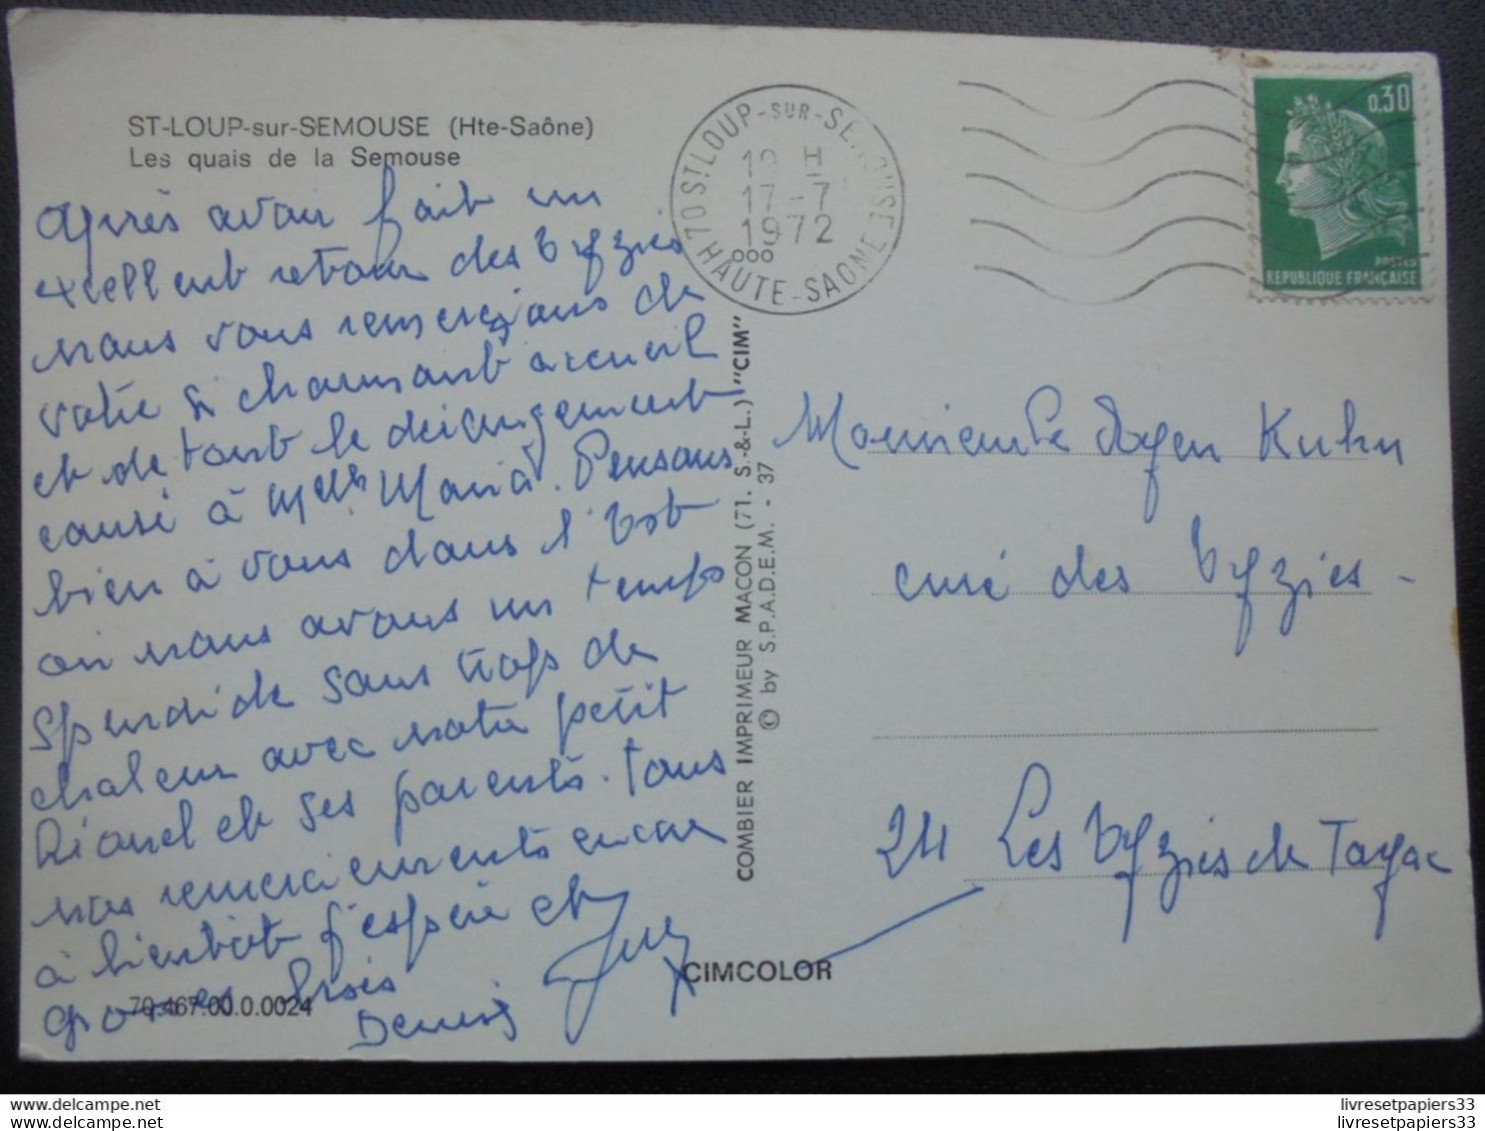 ST-LOUP-sur-SEMOUSE (Hte-Saône)
Les quais de la Semouse
après avoir fait un
excellent retour des Eyzies
nous vous remercions de
votre si charmant accueil
et de tout le dérangement
causé à Melle Maria. Pensons
bien à vous dans l'Est
où nous avons un temps
splendide sans trop de
chaleur avec notre petit
Lionel et ses parents. tous
nos remerciements encore
à bientôt j'espère et
grosses bises
Denis
70.467.00.0.0024
70 ST LOUP-SUR-SEMOUSE
HAUTE-SAONE
19 H
17-7
1972
000
0.30
POSTES
REPUBLIQUE FRANÇAISE
COMBIER IMPRIMEUR MACON (71. S.-&-L.) "CIM"
© by S.P.A.D.E.M. - 37
Monsieur le doyen Kuhn
curé des Eyzies -
24 Les Eyzies de Tayac
CIMCOLOR
www.delcampe.net
www.delcampe.net
livresetpapiers33
livresetpapiers33